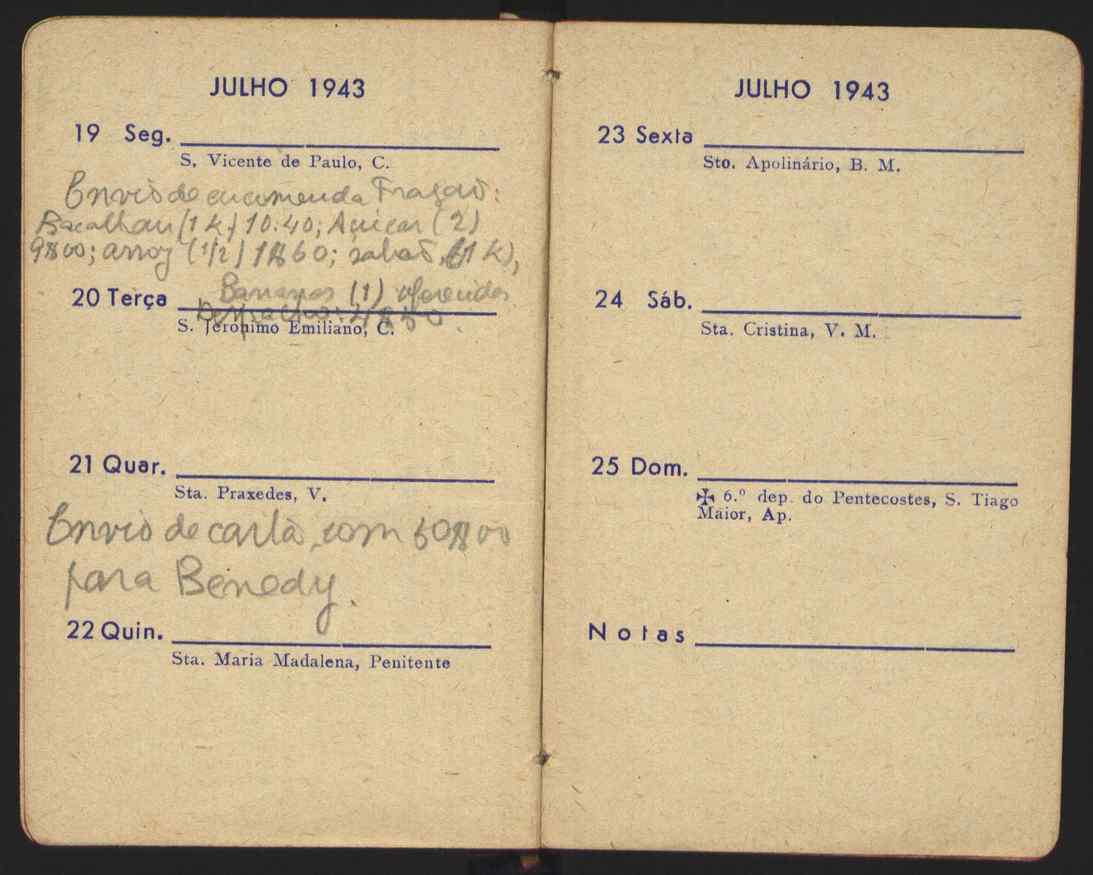 JULHO 1943
19 Seg.
S. Vicente de Paulo, C.
Envio de encomenda Fragao:
Bacalhau (1 k) 10.40; Açúcar (2)
9$00; arroz (1/2) 1$60; sabão (1 k),
20 Terça
Bananas (1) oferecidas
Despacho: 4$50.
S. Jerónimo Emiliano, C.
21 Quar.
Sta. Praxedes, V.
Envio de carta com 50$00
para Benedy.
22 Quin.
Sta. Maria Madalena, Penitente
JULHO 1943
23 Sexta
Sto. Apolinário, B. M.
24 Sáb.
Sta. Cristina, V. M.
25 Dom.
✠ 6.º dep. do Pentecostes, S. Tiago
Maior, Ap.
Notas